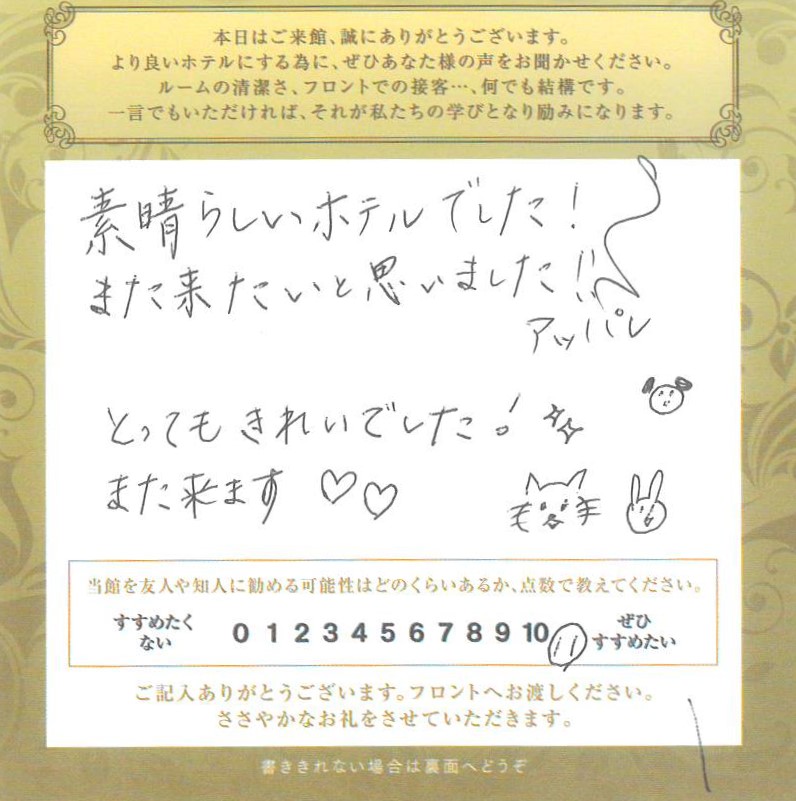 本日はご来館、誠にありがとうございます。
より良いホテルにする為に、ぜひあなた様の声をお聞かせください。
ルームの清潔さ、フロントでの接客…、何でも結構です。
一言でもいただければ、それが私たちの学びとなり励みになります。
素晴らしいホテルでした!
また来たいと思いました!!
アッパレ
とってもきれいでした!
また来ます♡♡
当館を友人や知人に勧める可能性はどのくらいあるか、点数で教えてください。
すすめたくない 0 1 2 3 4 5 6 7 8 9 10 11 ぜひすすめたい
ご記入ありがとうございます。フロントへお渡しください。
ささやかなお礼をさせていただきます。
書ききれない場合は裏面へどうぞ